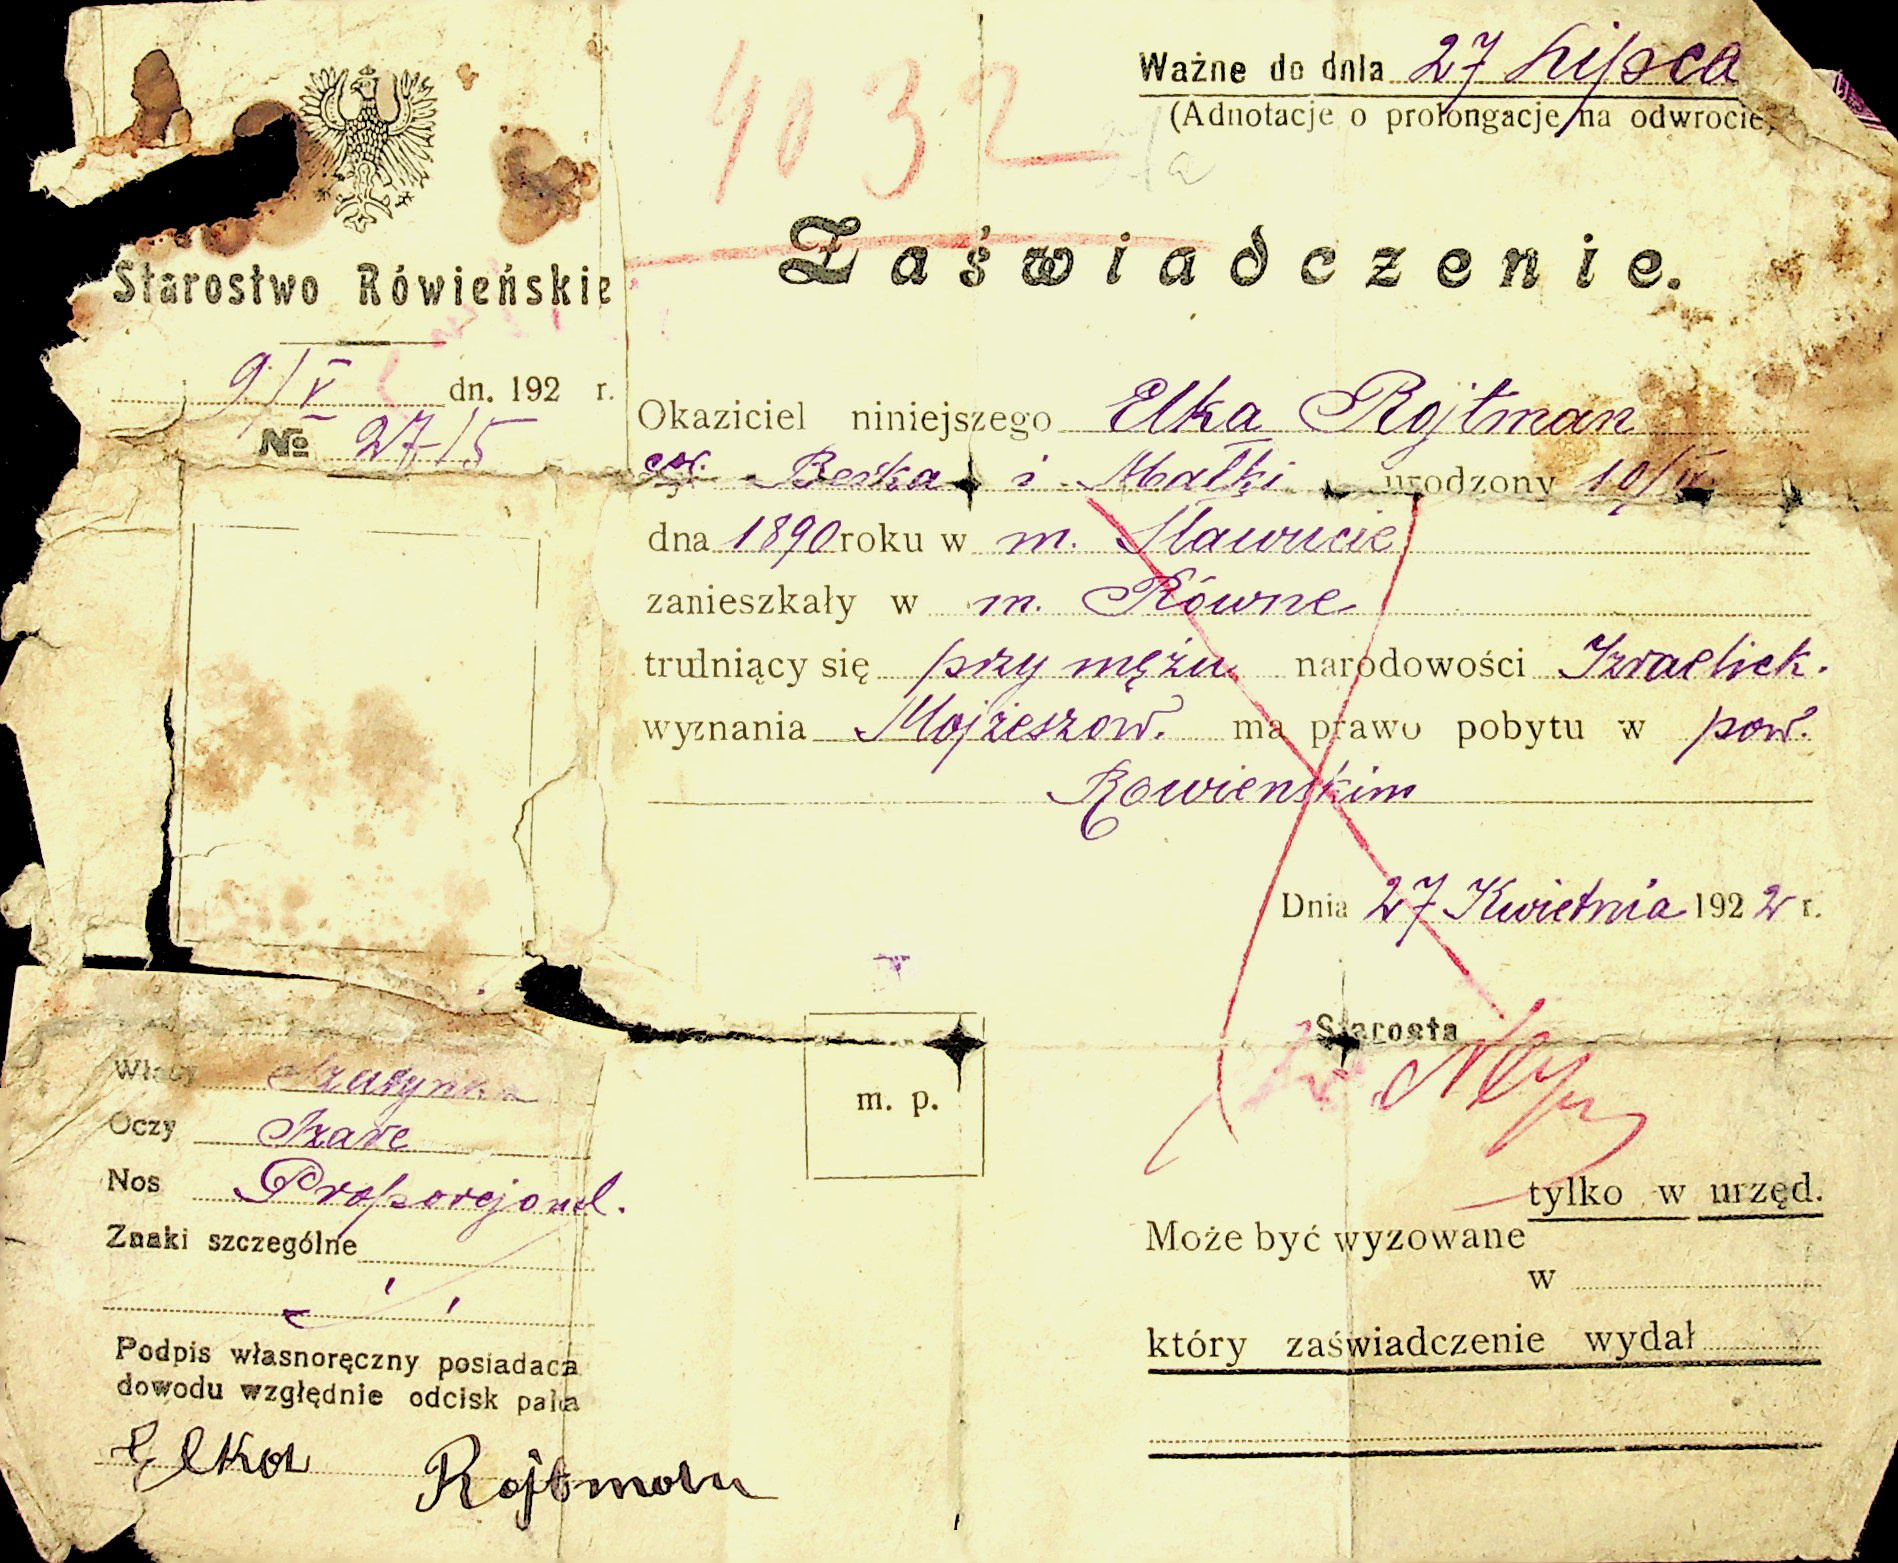 Ważne do dnia 27 Lipca
(Adnotacje o prolongacje na odwrocie)
4032
Zaświadczenie.
Starostwo Rówieńskie
9/V dn. 192 r.
№ 2715
Okaziciel niniejszego Elka Rojtman
Berka i Małki urodzony 10/IV
dna 1890 roku w m. Sławucie
zanieszkały w m. Równe
trulniący się przy mężu narodowości Izraelick.
wyznania Mojżeszow. ma prawo pobytu w pow.
Rowienskim
Dnia 27 Kwietnia 1922 r.
Starosta
m. p.
Włosy Szatynka
Oczy Szare
Nos Proporcjonal.
Znaki szczególne
Podpis własnoręczny posiadacza
dowodu względnie odcisk palca
Elka Rojtman
tylko w urzęd.
Może być wyzowane
w
który zaświadczenie wydał